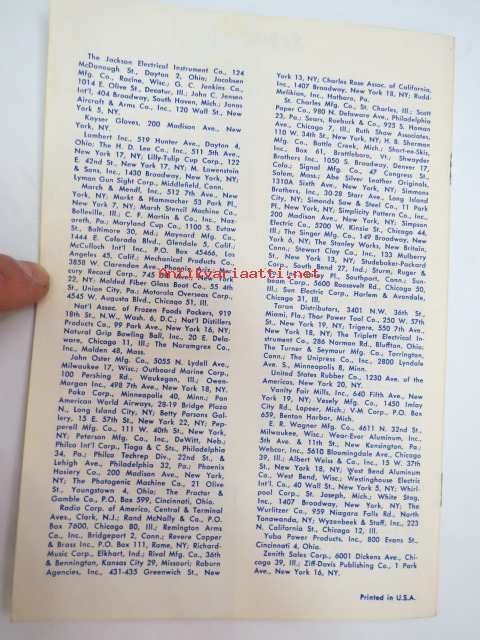 The Jackson Electrical Instrument Co., 124
McDonough St., Dayton 2, Ohio; Jacobsen
Mfg. Co., Racine, Wisc.; G. C. Jenkins Co.,
1014 E. Olive St., Decatur, Ill.; John C. Jensen
Int'l, 404 Broadway, South Haven, Mich.; Jonas
Aircraft & Arms Co., Inc., 120 Wall St., New
York 5, NY.
Kayser Gloves, 200 Madison Ave., New
York, NY.
Lambert Inc., 519 Hunter Ave., Dayton 4,
Ohio; The H. D. Lee Co., Inc., 511 5th Ave.,
New York 17, NY; Lilly-Tulip Cup Corp., 122
E. 42nd St., New York 17, NY; M. Lowenstein
& Sons, Inc., 1430 Broadway, New York, NY;
Lyman Gun Sight Corp., Middlefield, Conn.
March & Mendl, Inc., 512 7th Ave., New
York, NY; Markt & Hammacher 53 Park Pl.,
New York 7, NY; Marsh Stencil Machine Co.,
Belleville, Ill.; C. F. Martin & Co., Inc., Naz-
areth, Pa; Maryland Cup Co., 1100 S. Eutaw
St., Baltimore 30, Md.; Maynard Mfg. Co.,
1444 E. Colorado Blvd., Glendale 5, Calif.;
McCulloch Int'l Inc., P.O. Box 45466, Los
Angeles 45, Calif.; Mechanical Products Co.,
3858 W. Clarendon Ave., Phoenix, Ariz.; Mer-
cury Record Corp., 745 5th Ave., New York
22, NY; Molded Fiber Glass Boat Co., 55 4th
St., Union City, Pa.; Motorola Overseas Corp.,
4545 W. Augusta Blvd., Chicago 51, Ill.
Nat'l Assn. of Frozen Foods Packers, 919
18th St., N.W., Wash. 6, D.C.; Nat'l Distillers
Products Co., 99 Park Ave., New York 16, NY;
Natural Grip Bowling Ball, Inc., 20 E. Dela-
ware, Chicago 11, Ill.; The Norumgrex Co.,
Inc., Malden 48, Mass.
John Oster Mfg. Co., 5055 N. Lydell Ave.,
Milwaukee 17, Wisc.; Outboard Marine Corp.,
100 Pershing Rd., Waukegan, Ill.; Owen-
Morgan Inc., 498 7th Ave., New York 18, NY.
Pako Corp., Minneapolis 40, Minn.; Pan
American World Airways, 28-19 Bridge Plaza
N., Long Island City, NY; Betty Parsons Gal-
lery, 15 E. 57th St., New York 22, NY; Pep-
perell Mfg. Co., 111 W. 40th St., New York,
NY; Peterson Mfg. Co., Inc., DeWitt, Neb.;
Philco Int'l Corp., Tioga & C Sts., Philadelphia
34, Pa.; Philco Techrep Div., 22nd St., &
Lehigh Ave., Philadelphia 32, Pa; Phoenix
Hosiery Co., 200 Madison Ave., New York,
NY; The Photogenic Machine Co., 21 Olive
St., Youngstown 4, Ohio; The Procter &
Gamble Co., P.O. Box 599, Cincinnati, Ohio.
Radio Corp. of America, Central & Terminal
Aves., Clark, N.J.; Rand McNally & Co., P.O.
Box 7600, Chicago 80, Ill.; Remington Arms
Co., Inc., Bridgeport 2, Conn.; Revere Copper
& Brass Inc., P.O. Box 111, Rome, NY; Richard-
Music Corp., Elkhart, Ind.; Rival Mfg. Co., 36th
& Bennington, Kansas City 29, Missouri; Raborn
Agencies, Inc., 431-435 Greenwich St., New
York 13, NY; Charles Rose Assoc. of California,
Inc., 1407 Broadway, New York 18, NY; Rudd-
Melikian, Inc., Hatboro, Pa.
St. Charles Mfg. Co., St. Charles, Ill.; Scott
Paper Co., 980 N. Delaware Ave., Philadelphia
23, Pa.; Sears, Roebuck & Co., 925 S. Homan
Ave., Chicago 7, Ill.; Ruth Shaw Associates,
110 W. 34th St., New York, NY; H. B. Sherman
Mfg. Co., Battle Creek, Mich.; Short-ee-Skis,
Inc., Box 61, Brattleboro, Vt.; Shwayder
Brothers Inc., 1050 S. Broadway, Denver 17,
Colo.; Signal Mfg. Co., 47 Congress St.,
Salem, Mass.; Abe Silver Leather Originals,
1310A Sixth Ave., New York, NY; Simmons
Brothers, Inc., 30-28 Starr Ave., Long Island
City, NY; Simonds Saw & Steel Co., 11 Park
Pl., New York, NY; Simplicity Pattern Co., Inc.,
200 Madison Ave., New York, NY; Simpson
Electric Co., 5200 W. Kinzie St., Chicago 44,
Ill.; The Singer Mfg. Co., 149 Broadway, New
York 6, NY; The Stanley Works, New Britain,
Conn.; Stewart Clay Co., Inc., 133 Mulberry
St., New York 13, NY; Studebaker-Packard
Corp., South Bend 27, Ind.; Sturm, Ruger &
Co., 1 Lacey Place, Southport, Conn.; Sun-
beam Corp., 5600 Roosevelt Rd., Chicago 50,
Ill.; Sun Electric Corp., Harlem & Avondale,
Chicago 31, Ill.
Taron Distributors, 3401 N.W. 36th St.,
Miami, Fla.; Thor Power Tool Co., 250 W. 57th
St., New York 19, NY; Trigere, 550 7th Ave.,
New York 18, NY; The Triplett Electrical In-
strument Co., 286 Norman Rd., Bluffton, Ohio;
The Turner & Seymour Mfg. Co., Torrington,
Conn.; The Unipress Co., Inc., 2800 Lyndale
Ave. S., Minneapolis 8, Minn.
United States Rubber Co., 1230 Ave. of the
Americas, New York 20, NY.
Vanity Fair Mills, Inc., 640 Fifth Ave., New
York 19, NY; Vexely Mfg. Co., 1450 Imlay
City Rd., Lapeer, Mich.; V-M Corp., P.O. Box
659, Benton Harbor, Mich.
E. R. Wagner Mfg. Co., 4611 N. 32nd St.,
Milwaukee, Wisc.; Wear-Ever Aluminum, Inc.,
5th Ave. & 11th St., New Kensington, Pa.;
Webcor, Inc., 5610 Bloomingdale Ave., Chicago
39, Ill.; Albert Weiss & Co., Inc., 15 W. 37th
St., New York 18, NY; West Bend Aluminum
Co., West Bend, Wisc; Westinghouse Electric
Int'l. Co., 40 Wall St., New York 5, NY; Whirl-
pool Corp., St. Joseph, Mich.; White Stag,
Inc., 1407 Broadway, New York, NY; The
Wurlitzer Co., 959 Niagara Falls Rd., North
Tonawanda, NY; Wyzenbeek & Staff, Inc., 223
N. California St., Chicago 12, Ill.
Yuba Power Products, Inc., 800 Evans St.,
Cincinnati 4, Ohio.
Zenith Sales Corp., 6001 Dickens Ave., Chi-
cago 39, Ill.; Ziff-Davis Publishing Co., 1 Park
Ave., New York 16, NY.
Printed in U.S.A.